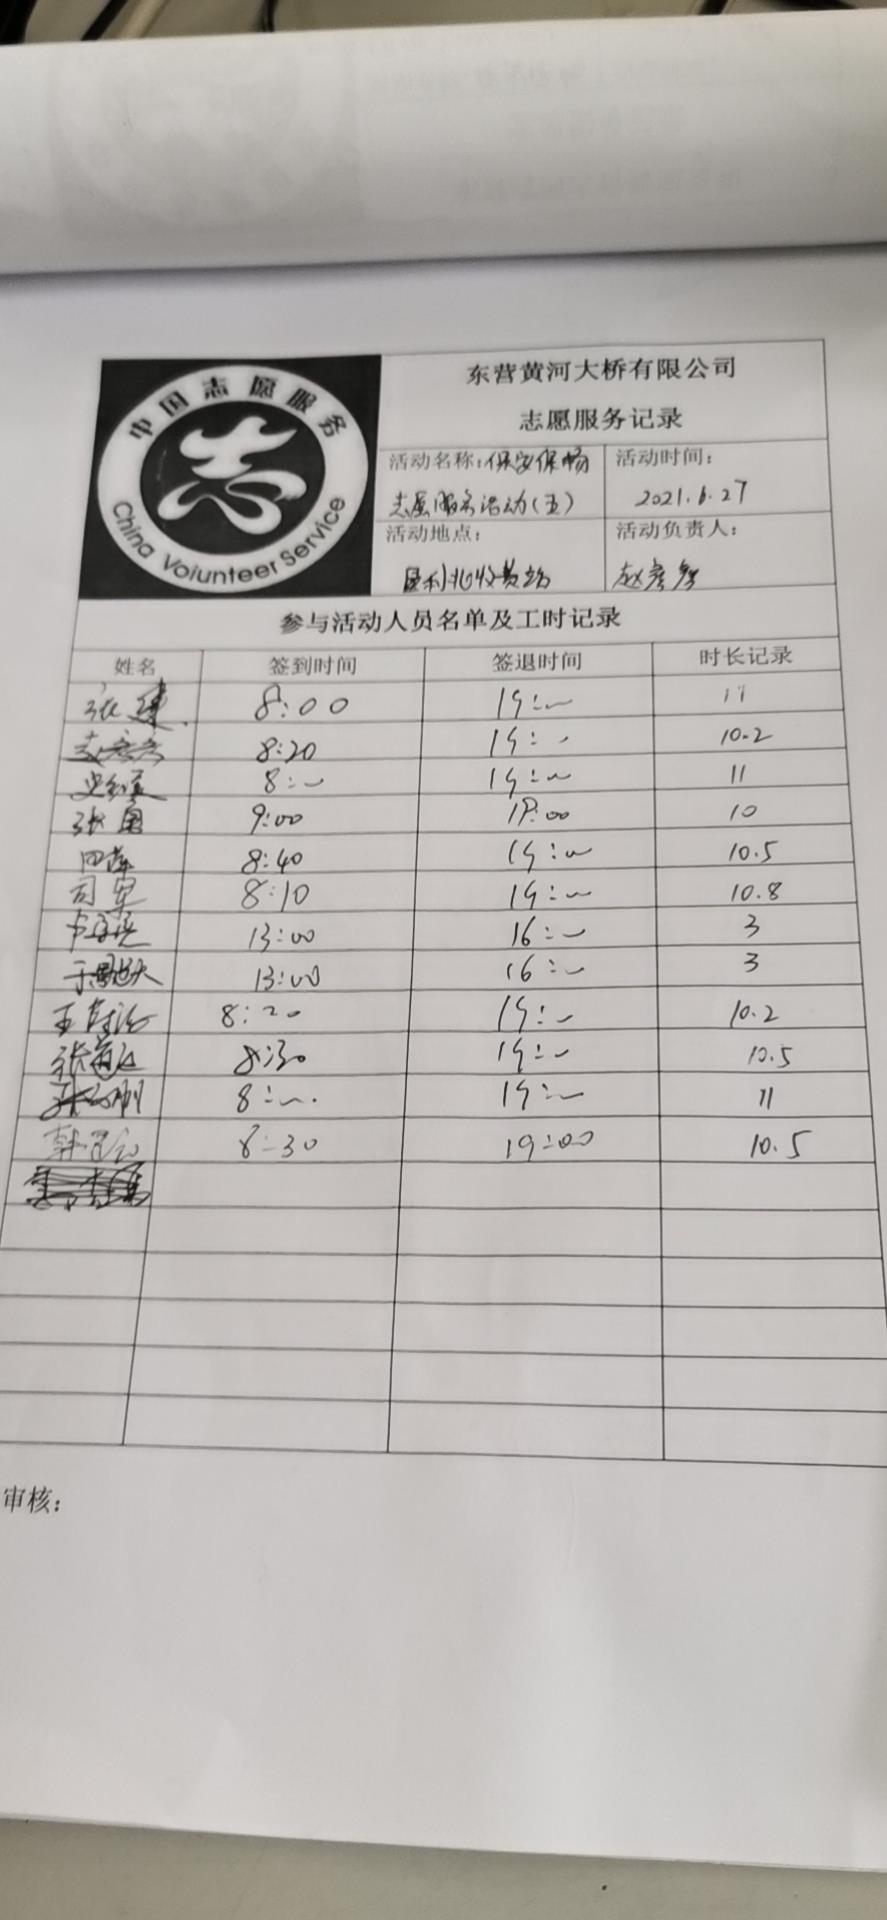 中国志愿服务
China Volunteer Service
东营黄河大桥有限公司
志愿服务记录
活动名称：保安保畅
志愿服务活动（五）
活动时间：
2021.6.27
活动地点：
垦利北收费站
活动负责人：
赵彦
参与活动人员名单及工时记录
姓名 签到时间 签退时间 时长记录
张建 8:00 19:00 11
8:20 19:00 10.2
8:00 19:00 11
张国 9:00 19:00 10
田萍 8:40 19:00 10.5
司军 8:10 19:00 10.8
13:00 16:00 3
于 13:00 16:00 3
王 8:20 19:00 10.2
张 8:30 19:00 10.5
8:00 19:00 11
韩 8:30 19:00 10.5
审核：